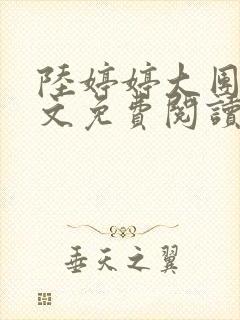 陸婷婷大團
文免費閱讀
垂天之翼